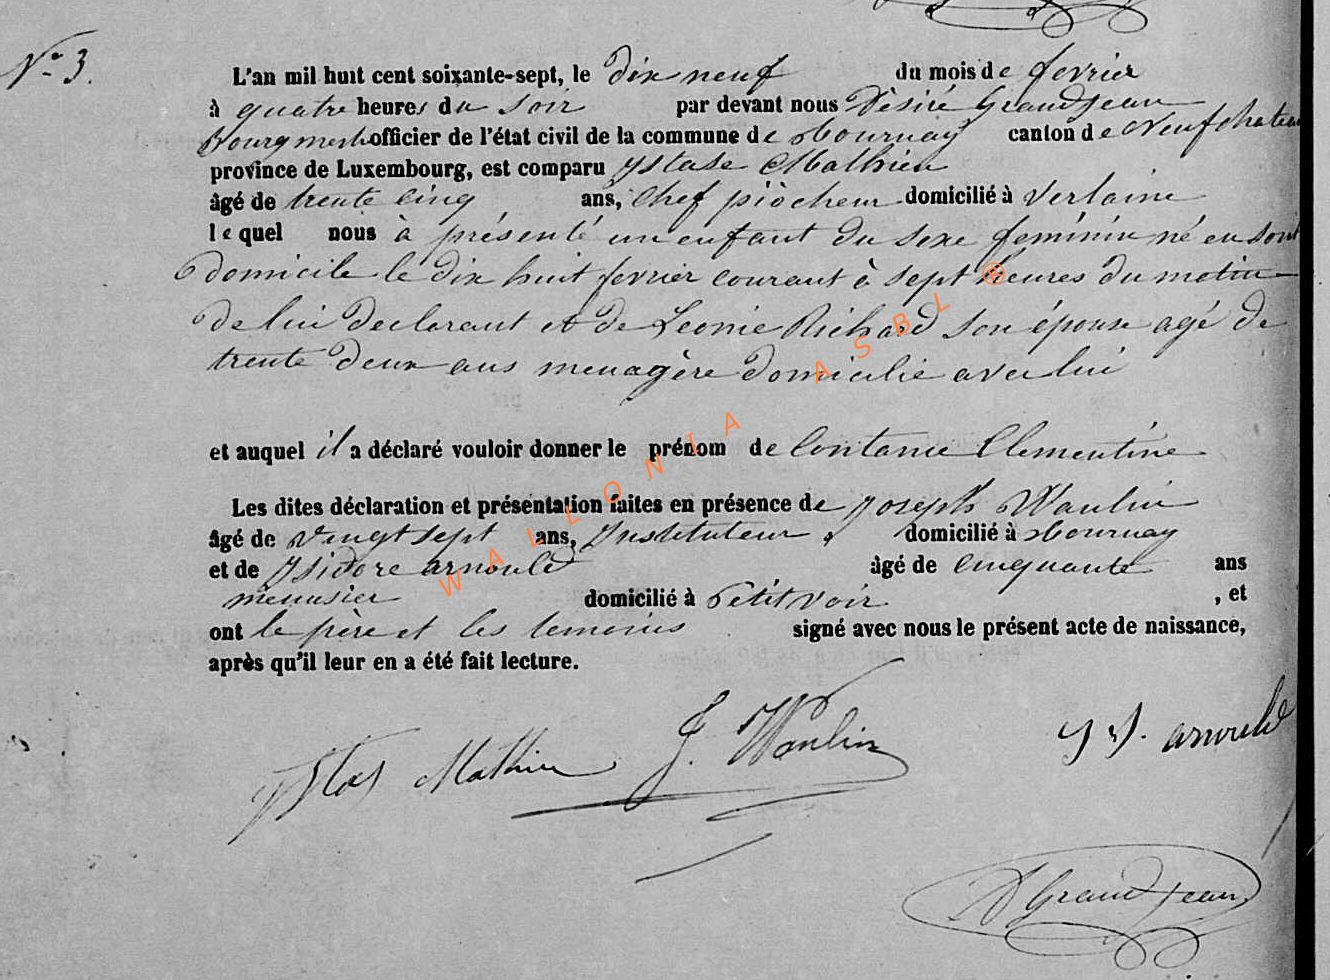 No 3.
L'an mil huit cent soixante-sept, le dix neuf du mois de fevrier
à quatre heures du soir par devant nous Désiré Grandjean
Bourgmestre officier de l'état civil de la commune de Tournay canton de Neufchateau
province de Luxembourg, est comparu Ystase Mathieu
âgé de trente cinq ans, chef piöcheur domicilié à Verlaine
lequel nous à présenté un enfant du sexe féminin né en sont
domicile le dix huit fevrier courant à sept heures du matin
de lui declarant et de Leonie Richard son épouse agé de
trente deux ans menagère domicilié avec lui
et auquel il a déclaré vouloir donner le prénom de Contance Clementine
Les dites déclaration et présentation faites en présence de Joseph Waulin
âgé de vingt sept ans, Instituteur, domicilié à Tournay
et de Isidore arnould âgé de cinquante ans
menusier domicilié à Petitvoir, et
ont le père et les temoins signé avec nous le présent acte de naissance,
après qu'il leur en a été fait lecture.
Ystas Mathieu J. Waulin arnould
D Grandjean
WALLONIA ASBL ®